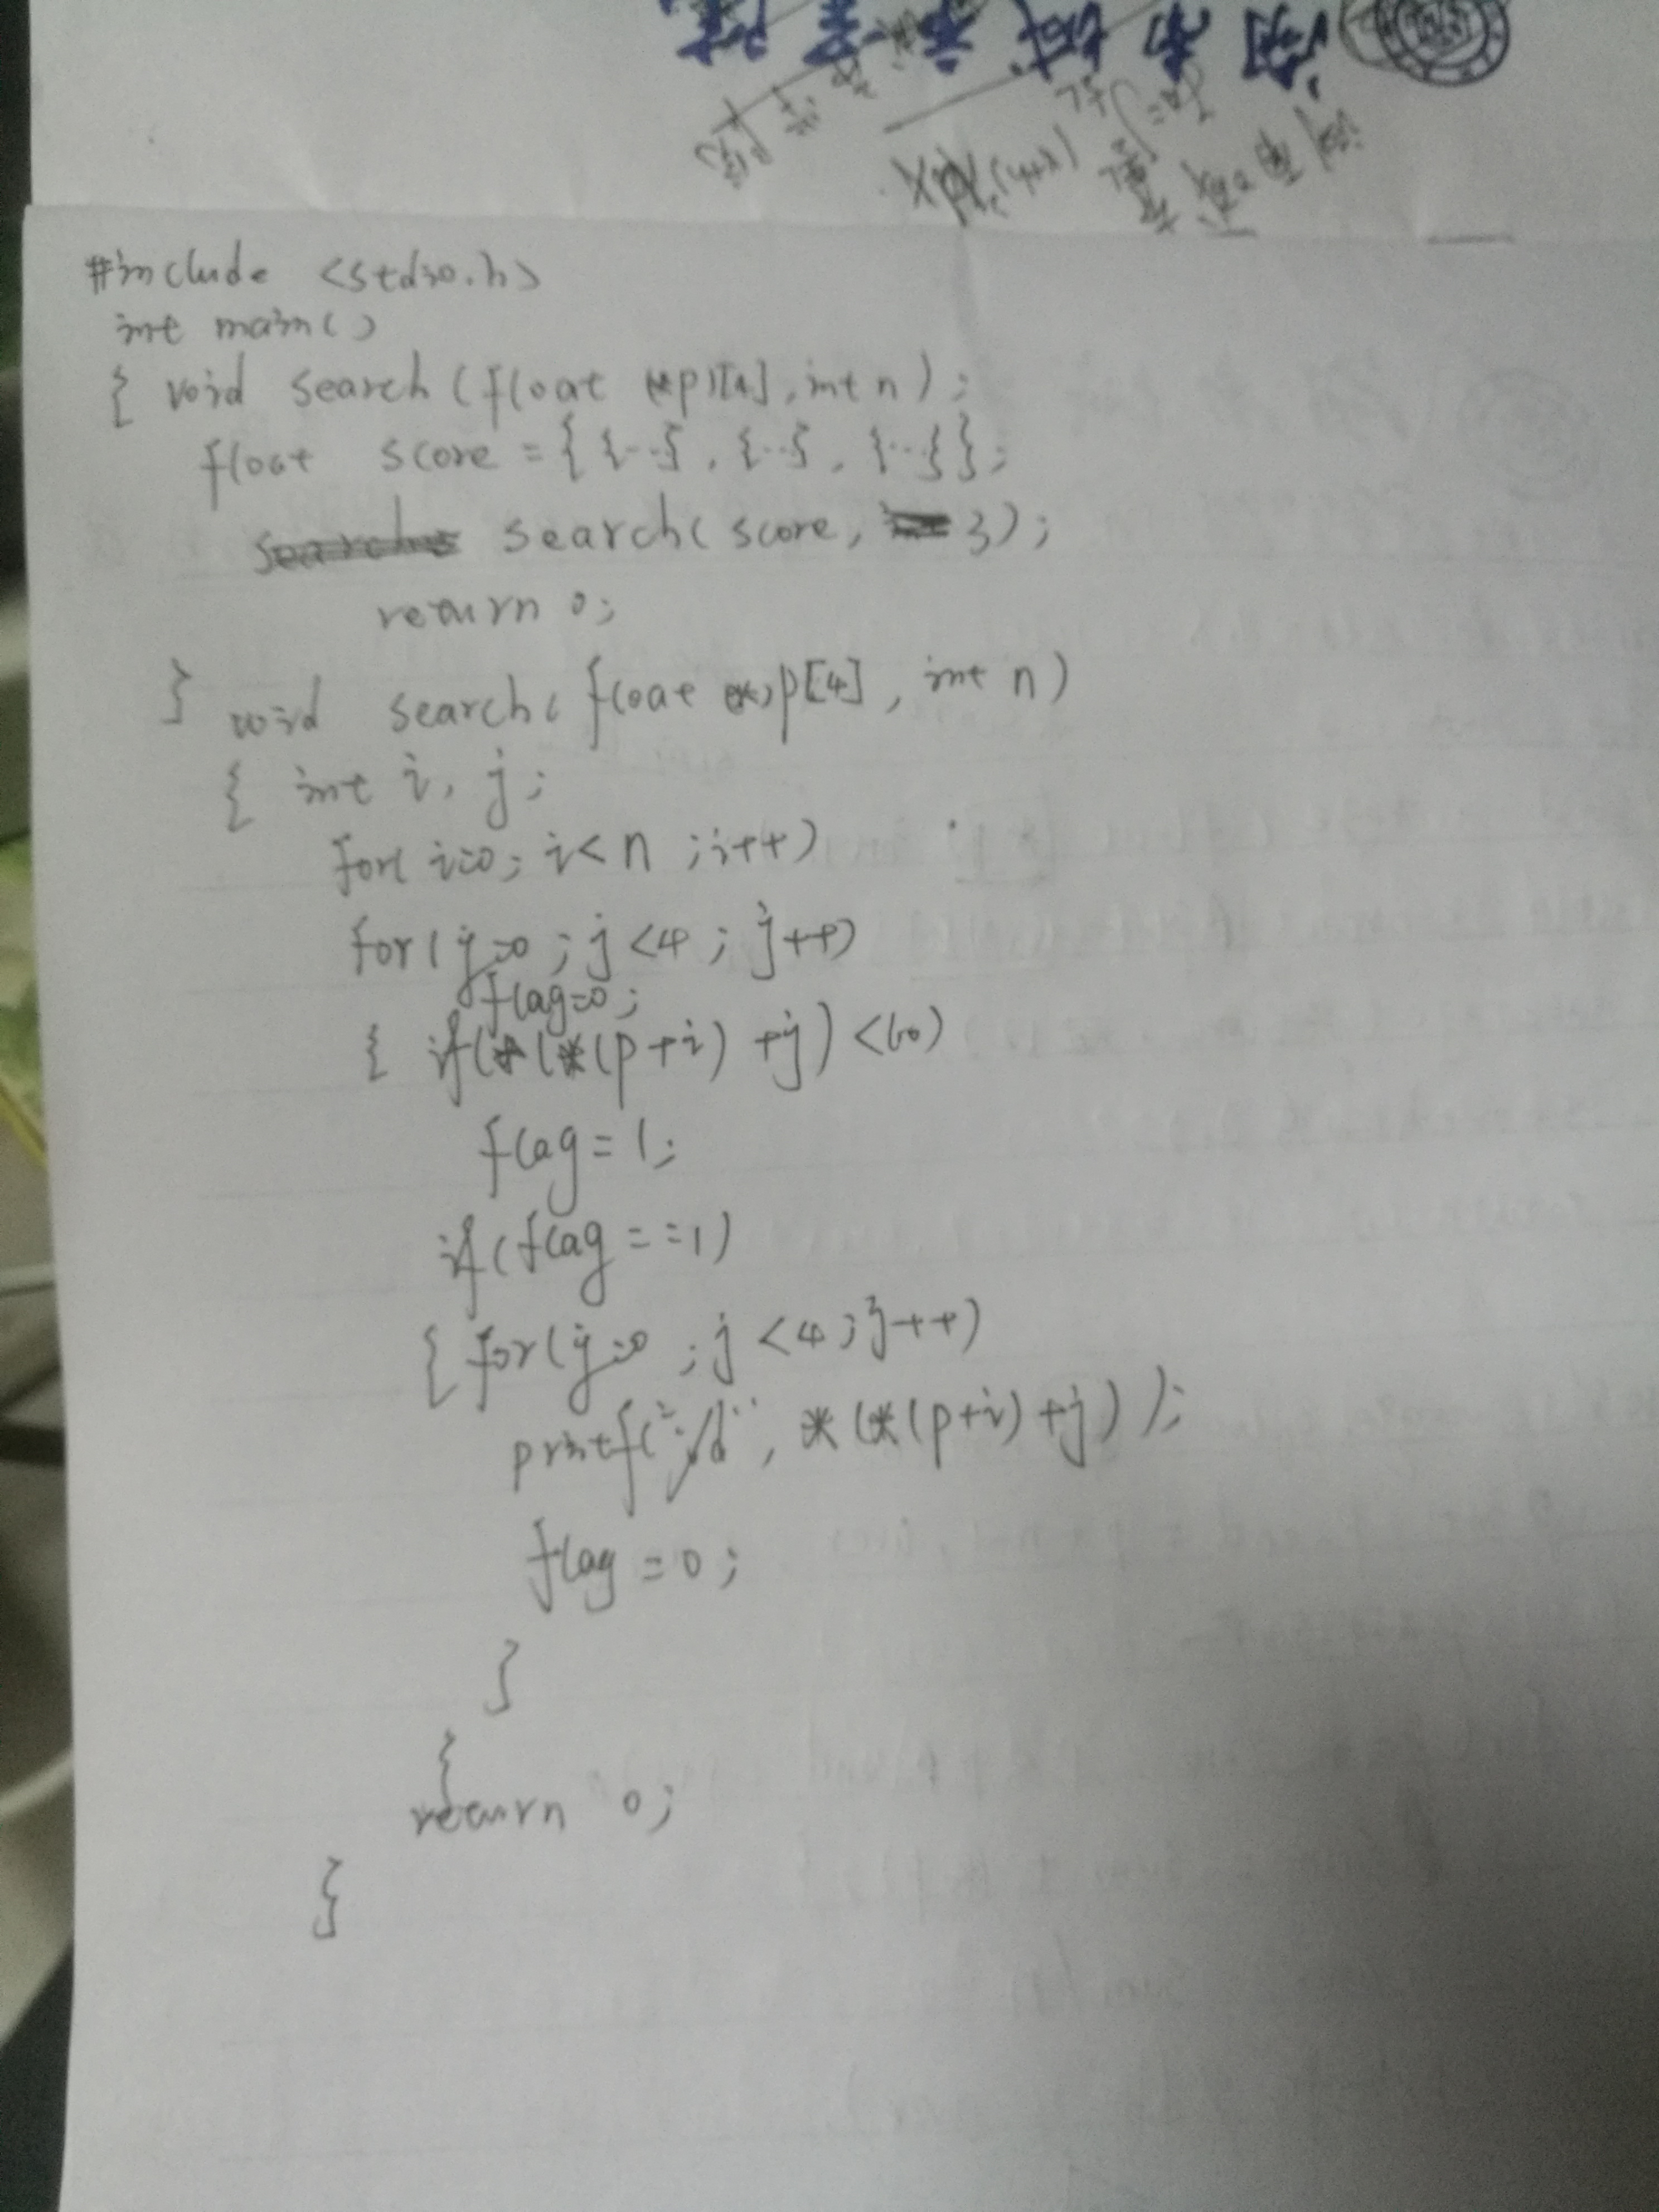 #include <stdio.h>
int main()
{ void search (float (*p)[4], int n);
float score = { {...}, {...}, {...}};
search( score, 3);
return 0;
}
void search( float (*)p[4], int n)
{ int i, j;
for( i=0; i< n ; i++)
for( j=0 ; j <4 ; j++)
flag=0;
{ if(*(*(p+i) +j) <60)
flag = 1;
if (flag ==1)
{ for(j=0 ; j <4 ; j++)
printf("%d", *(*(p+i)+j) );
flag =0;
}
{
return 0;
}